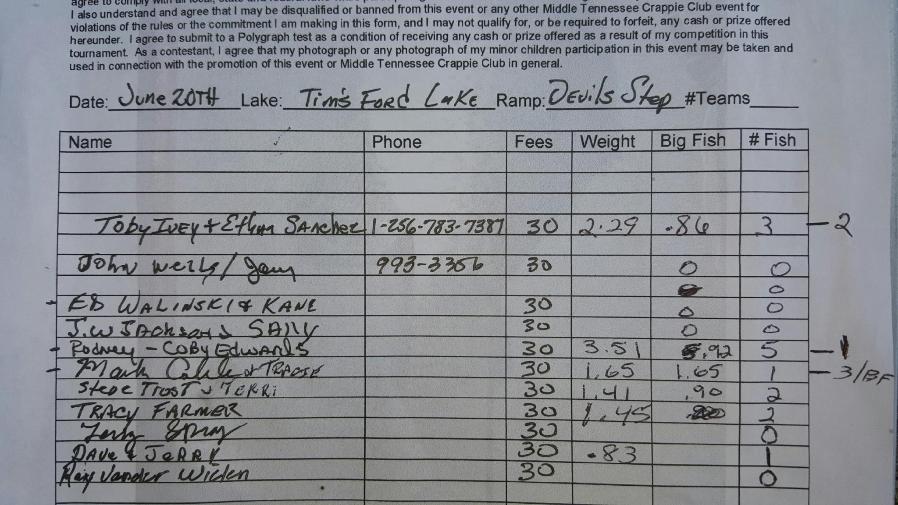 agree to comply with all local, state
I also understand and agree that I may be disqualified or banned from this event or any other Middle Tennessee Crappie Club event for
violations of the rules or the commitment I am making in this form, and I may not qualify for, or be required to forfeit, any cash or prize offered
hereunder. I agree to submit to a Polygraph test as a condition of receiving any cash or prize offered as a result of my competition in this
tournament. As a contestant, I agree that my photograph or any photograph of my minor children participation in this event may be taken and
used in connection with the promotion of this event or Middle Tennessee Crappie Club in general.
Date: June 20TH Lake: Tim's Ford Lake Ramp: Devils Step #Teams
Name Phone Fees Weight Big Fish # Fish
Toby Ivey + Ethan Sanchez 1-256-783-7387 30 2.29 .86 3 - 2
John Wells / 993-3356 30 0 0
0
- ED WALINSKI & KANE 30 0 0
J.W JACKSON & SALLY 30 0 0
- Rodney - COBY EDWARDS 30 3.51 .92 5 - 1
- Mark & TRACIE 30 1.65 1.65 1 - 3/BF
Steve TROST & TERRi 30 1.41 .90 2
TRACY FARMER 30 1.45 2
30 0
DAVE & JERRY 30 .83 1
Ray Vander Wielen 30 0